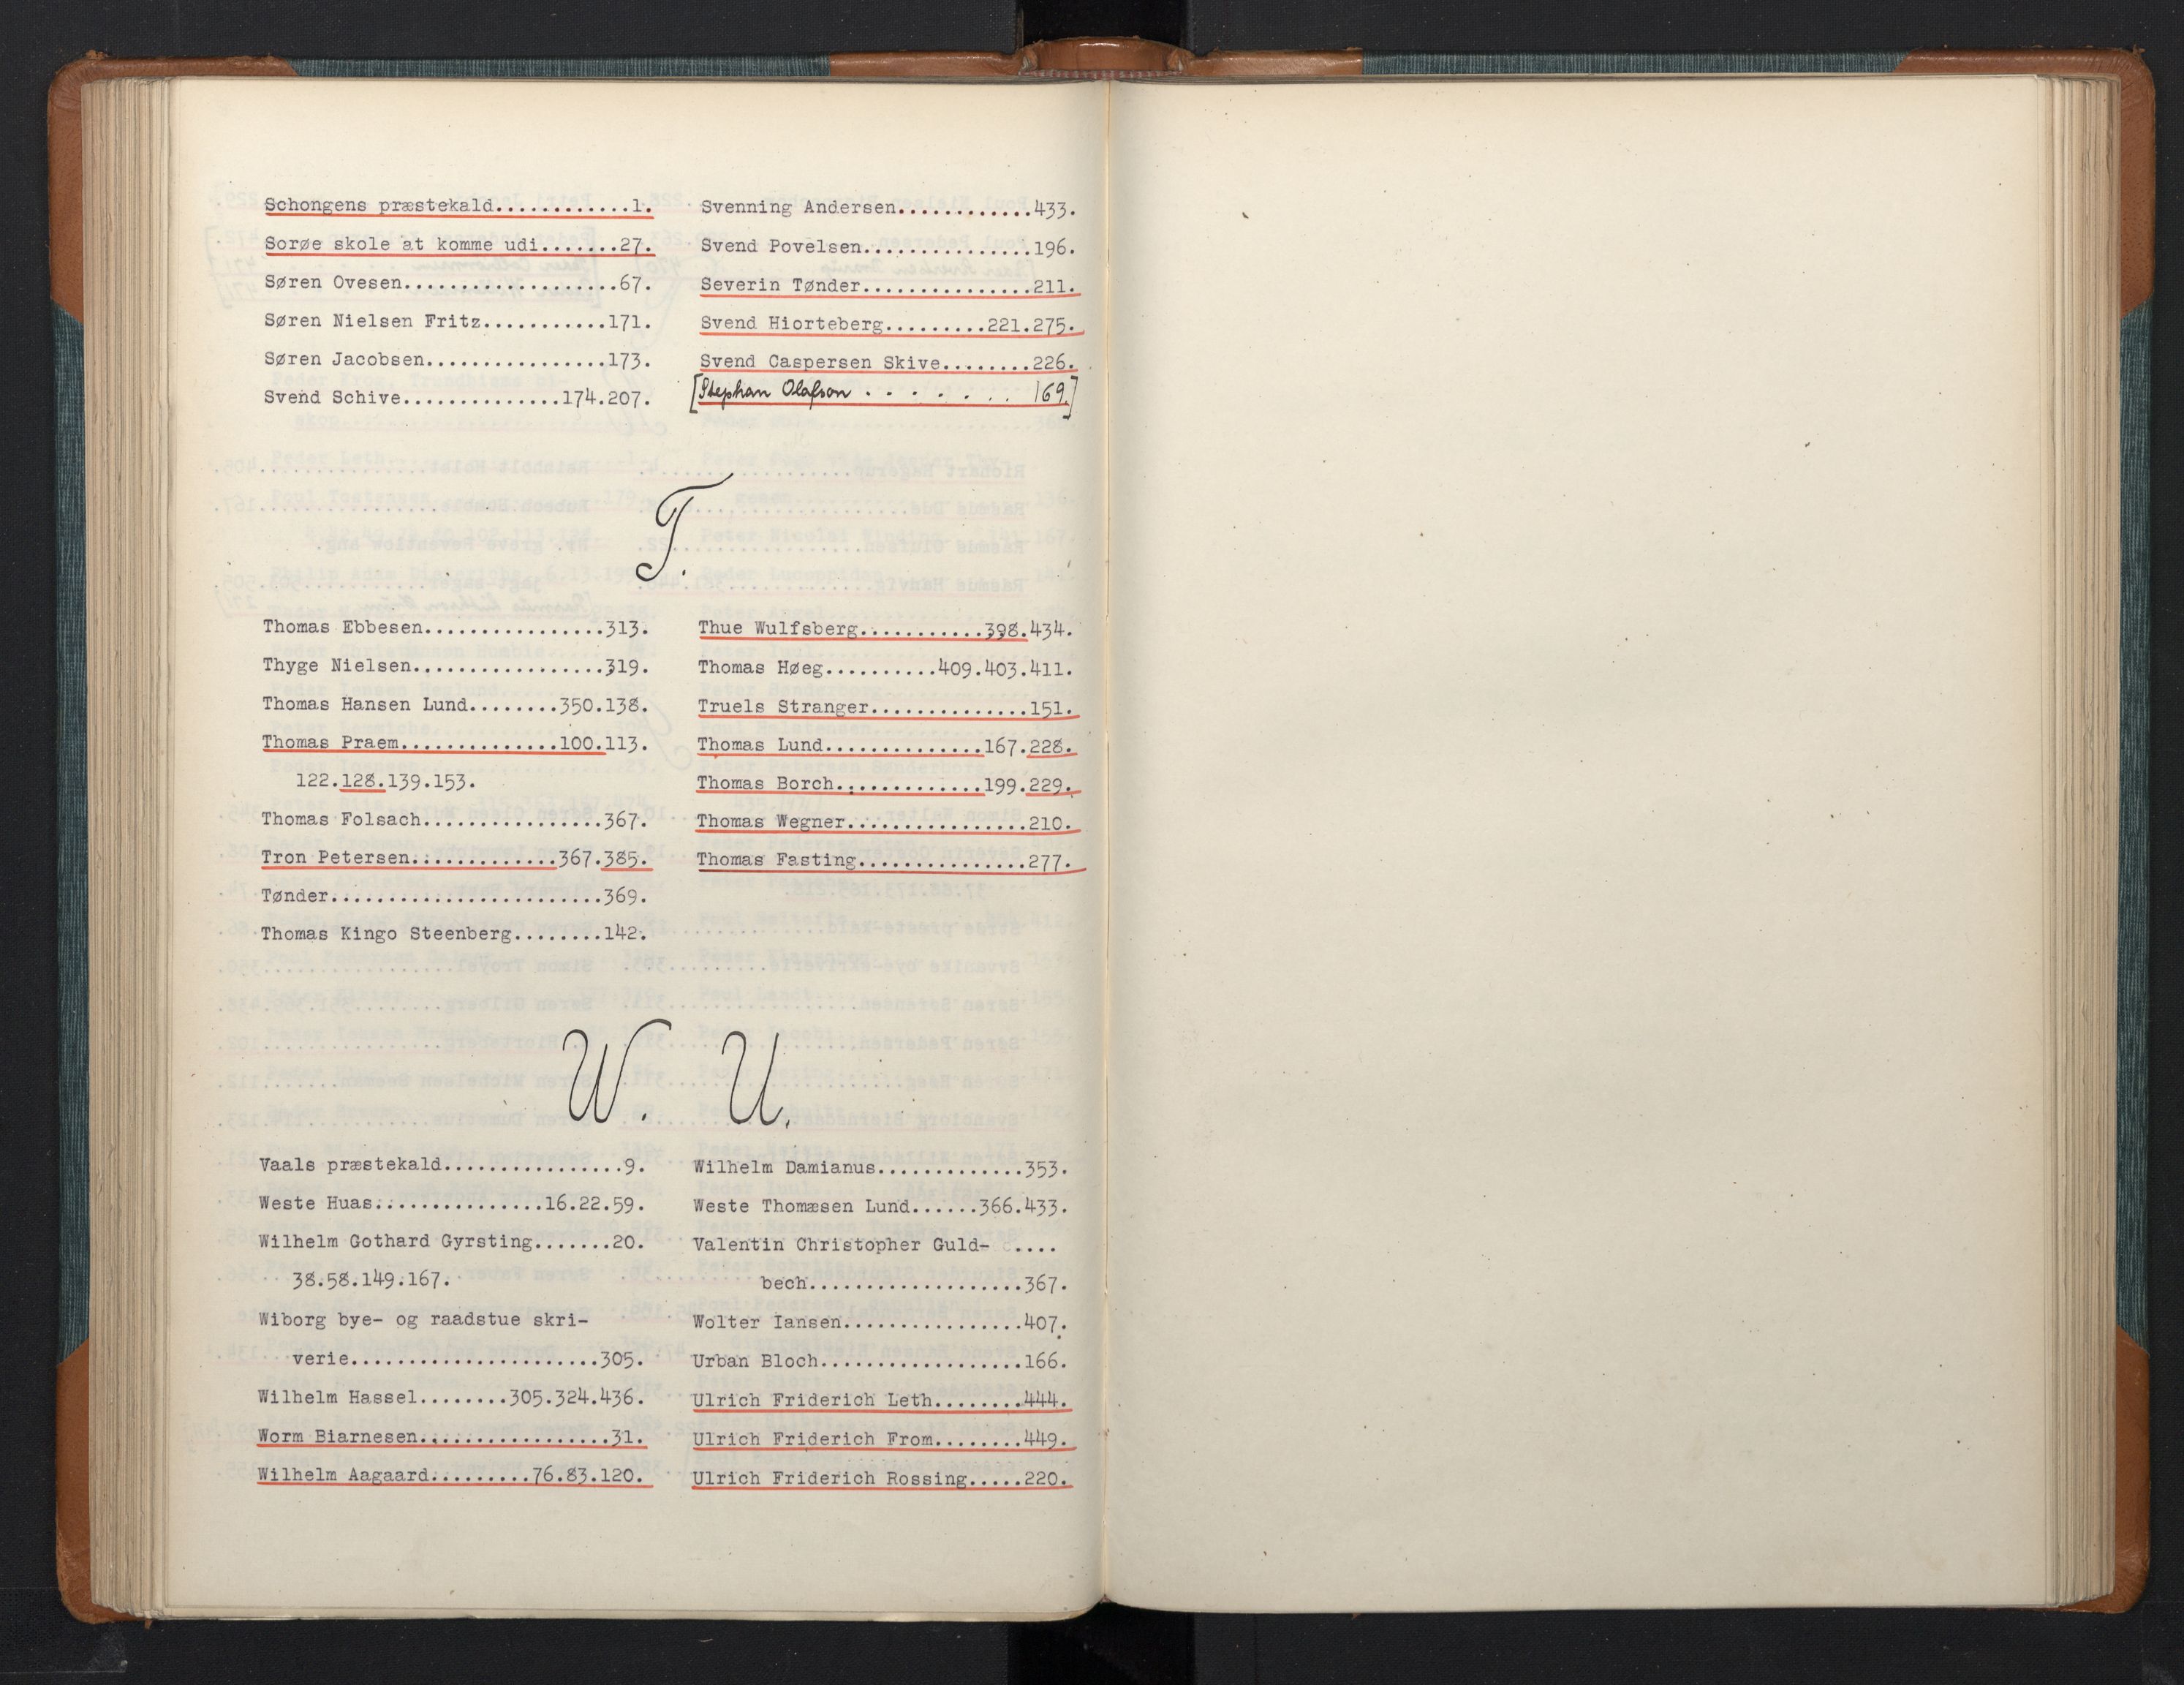 Schongens præstekald............1.
Sorøe skole at komme udi.......27.
Søren Ovesen...................67.
Søren Nielsen Fritz...........171.
Søren Jacobsen................173.
Svend Schive..............174.207.
Svenning Andersen............433.
Svend Povelsen...............196.
Severin Tønder...............211.
Svend Hiorteberg.........221.275.
Svend Caspersen Skive........226.
[Stephan Olafson . . . . . . . 169.]
T.
Thomas Ebbesen................313.
Thyge Nielsen.................319.
Thomas Hansen Lund........350.138.
Thomas Praem..............100.113.
122.128.139.153.
Thomas Folsach................367.
Tron Petersen.............367.385.
Tønder........................369.
Thomas Kingo Steenberg........142.
Thue Wulfsberg...........398.434.
Thomas Høeg..........409.403.411.
Truels Stranger..............151.
Thomas Lund..............167.228.
Thomas Borch.............199.229.
Thomas Wegner................210.
Thomas Fasting...............277.
W. U.
Vaals præstekald................9.
Weste Huas...............16.22.59.
Wilhelm Gothard Gyrsting.......20.
38.58.149.167.
Wiborg bye- og raadstue skri-
verie......................305.
Wilhelm Hassel........305.324.436.
Worm Biarnesen.................31.
Wilhelm Aagaard.........76.83.120.
Wilhelm Damianus.............353.
Weste Thomæsen Lund......366.433.
Valentin Christopher Guld- ....
bech...................367.
Wolter Iansen................407.
Urban Bloch..................166.
Ulrich Friderich Leth........444.
Ulrich Friderich From........449.
Ulrich Friderich Rossing.....220.